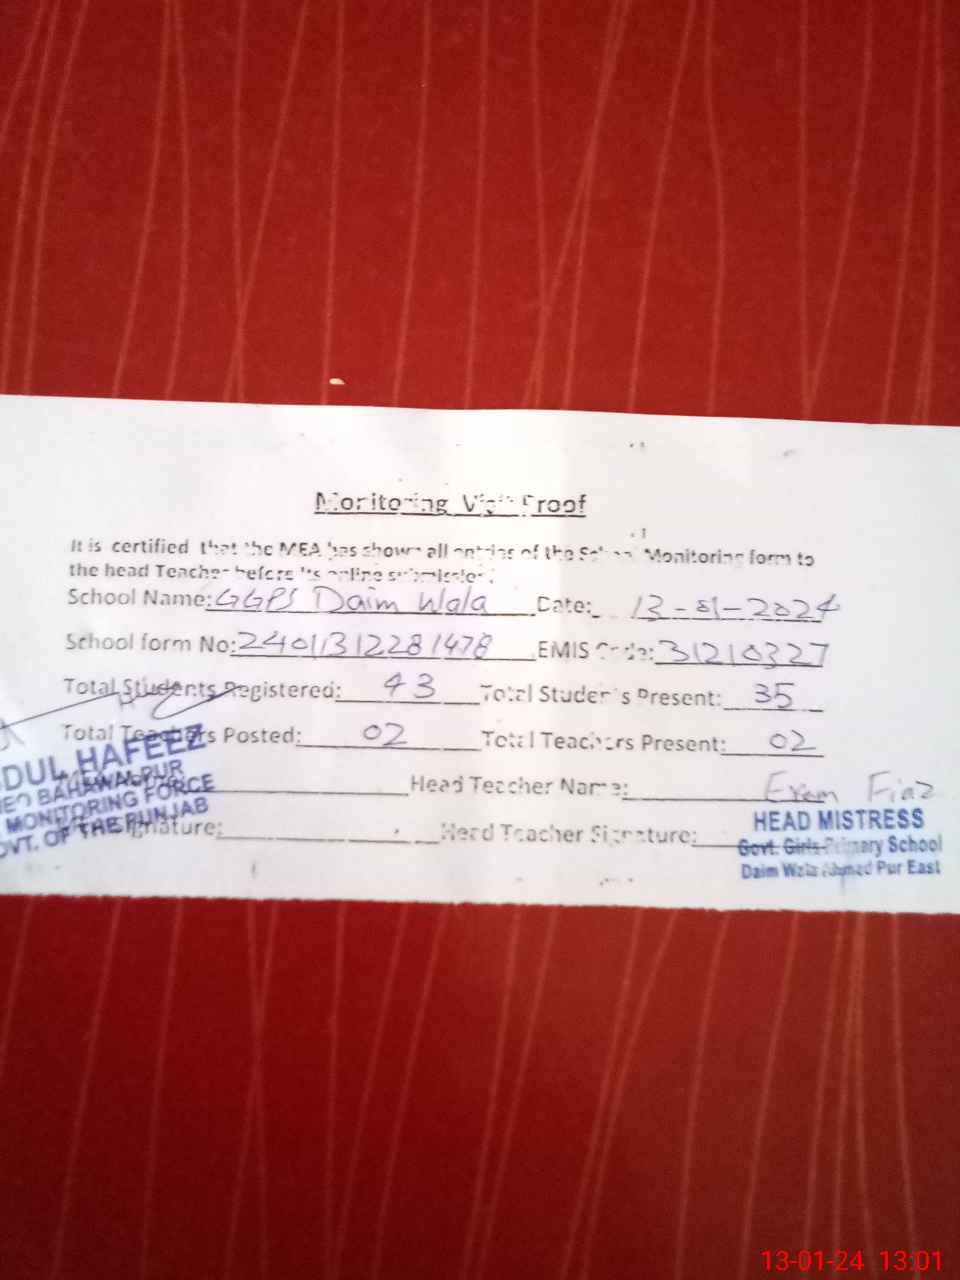 Monitoring Visit Proof
It is certified that the MEA has shown all entries of the School Monitoring form to
the head Teacher before its online submission.
School Name: GGPS Daim Wala Date: 13-01-2024
School form No: 24011312281478 EMIS Code: 31210327
Total Students Registered: 43 Total Students Present: 35
Total Teachers Posted: 02 Total Teachers Present: 02
DUL HAFEEZ
Head Teacher Name: Eram Fiaz
BAHAWALPUR
MONITORING FORCE
VT. OF THE PUNJAB
Signature: Head Teacher Signature:
HEAD MISTRESS
Govt. Girls Primary School
Daim Wala Ahmed Pur East
13-01-24 13:01